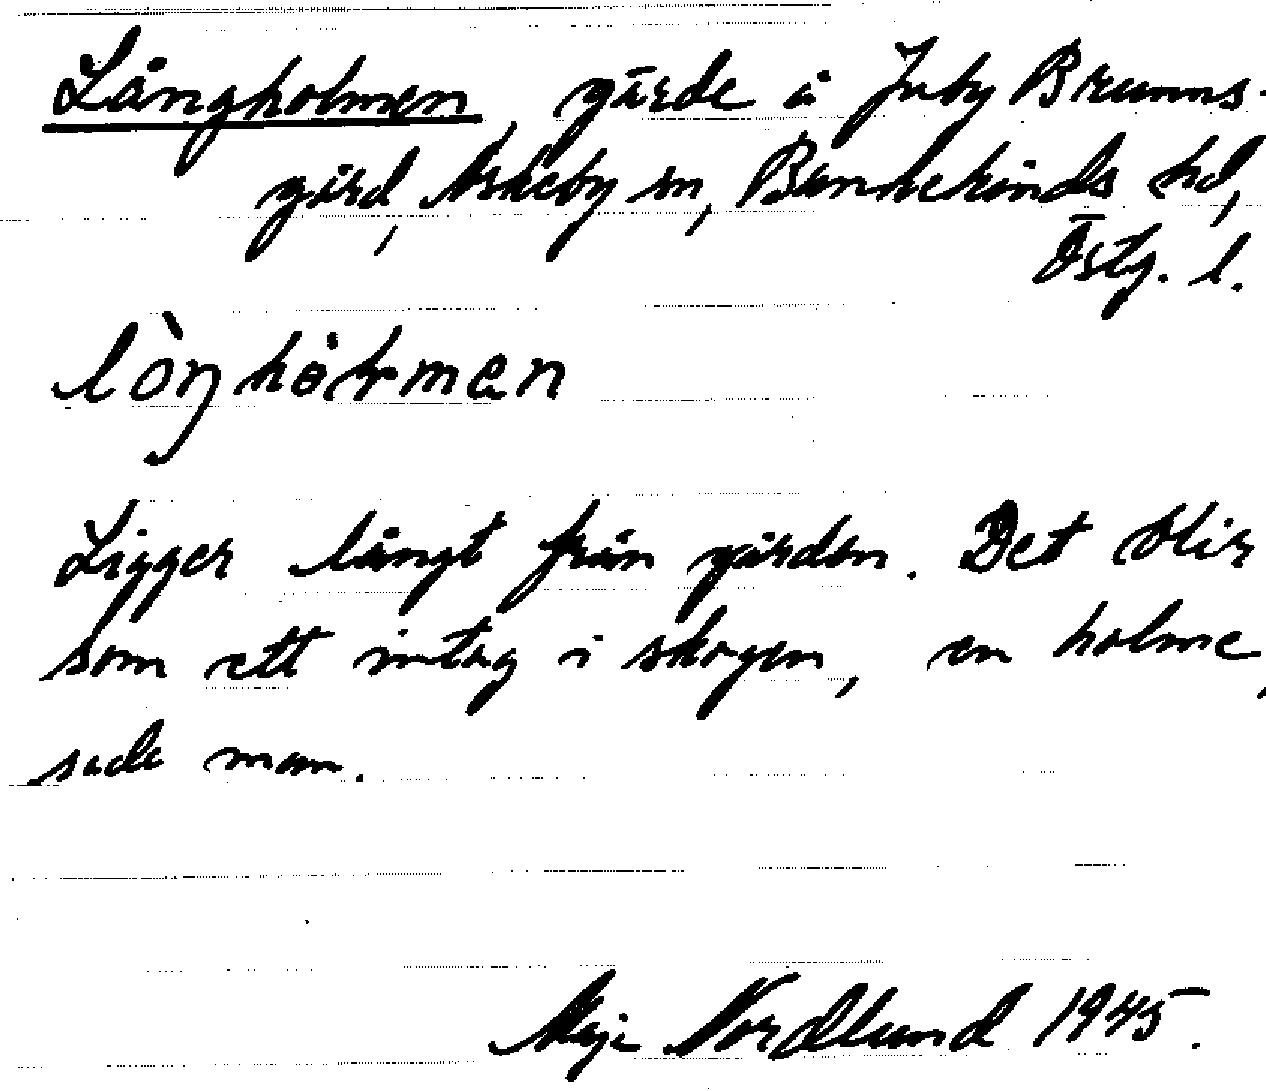 Långholmen, gärde å Juby Brunns-
gård, Askeby sn, Bankekinds hd,
Östg. l.
lòŋhòɫmən
Ligger långt från gården. Det blir
som ett intag i skogen, en holme,
sade man.
Maje Nordlund 1945.